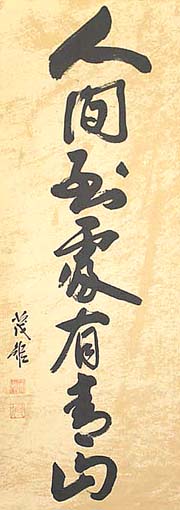 人間到處有青山
茂雄